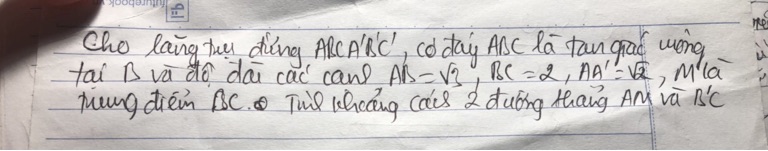 Cho lăng trụ đứng ABCA'B'C', có đáy ABC là tam giác vuông
tại B và độ dài các cạnh AB = √3, BC = 2, AA' = √2, M là
trung điểm BC. Tính khoảng cách 2 đường thẳng AM và B'C